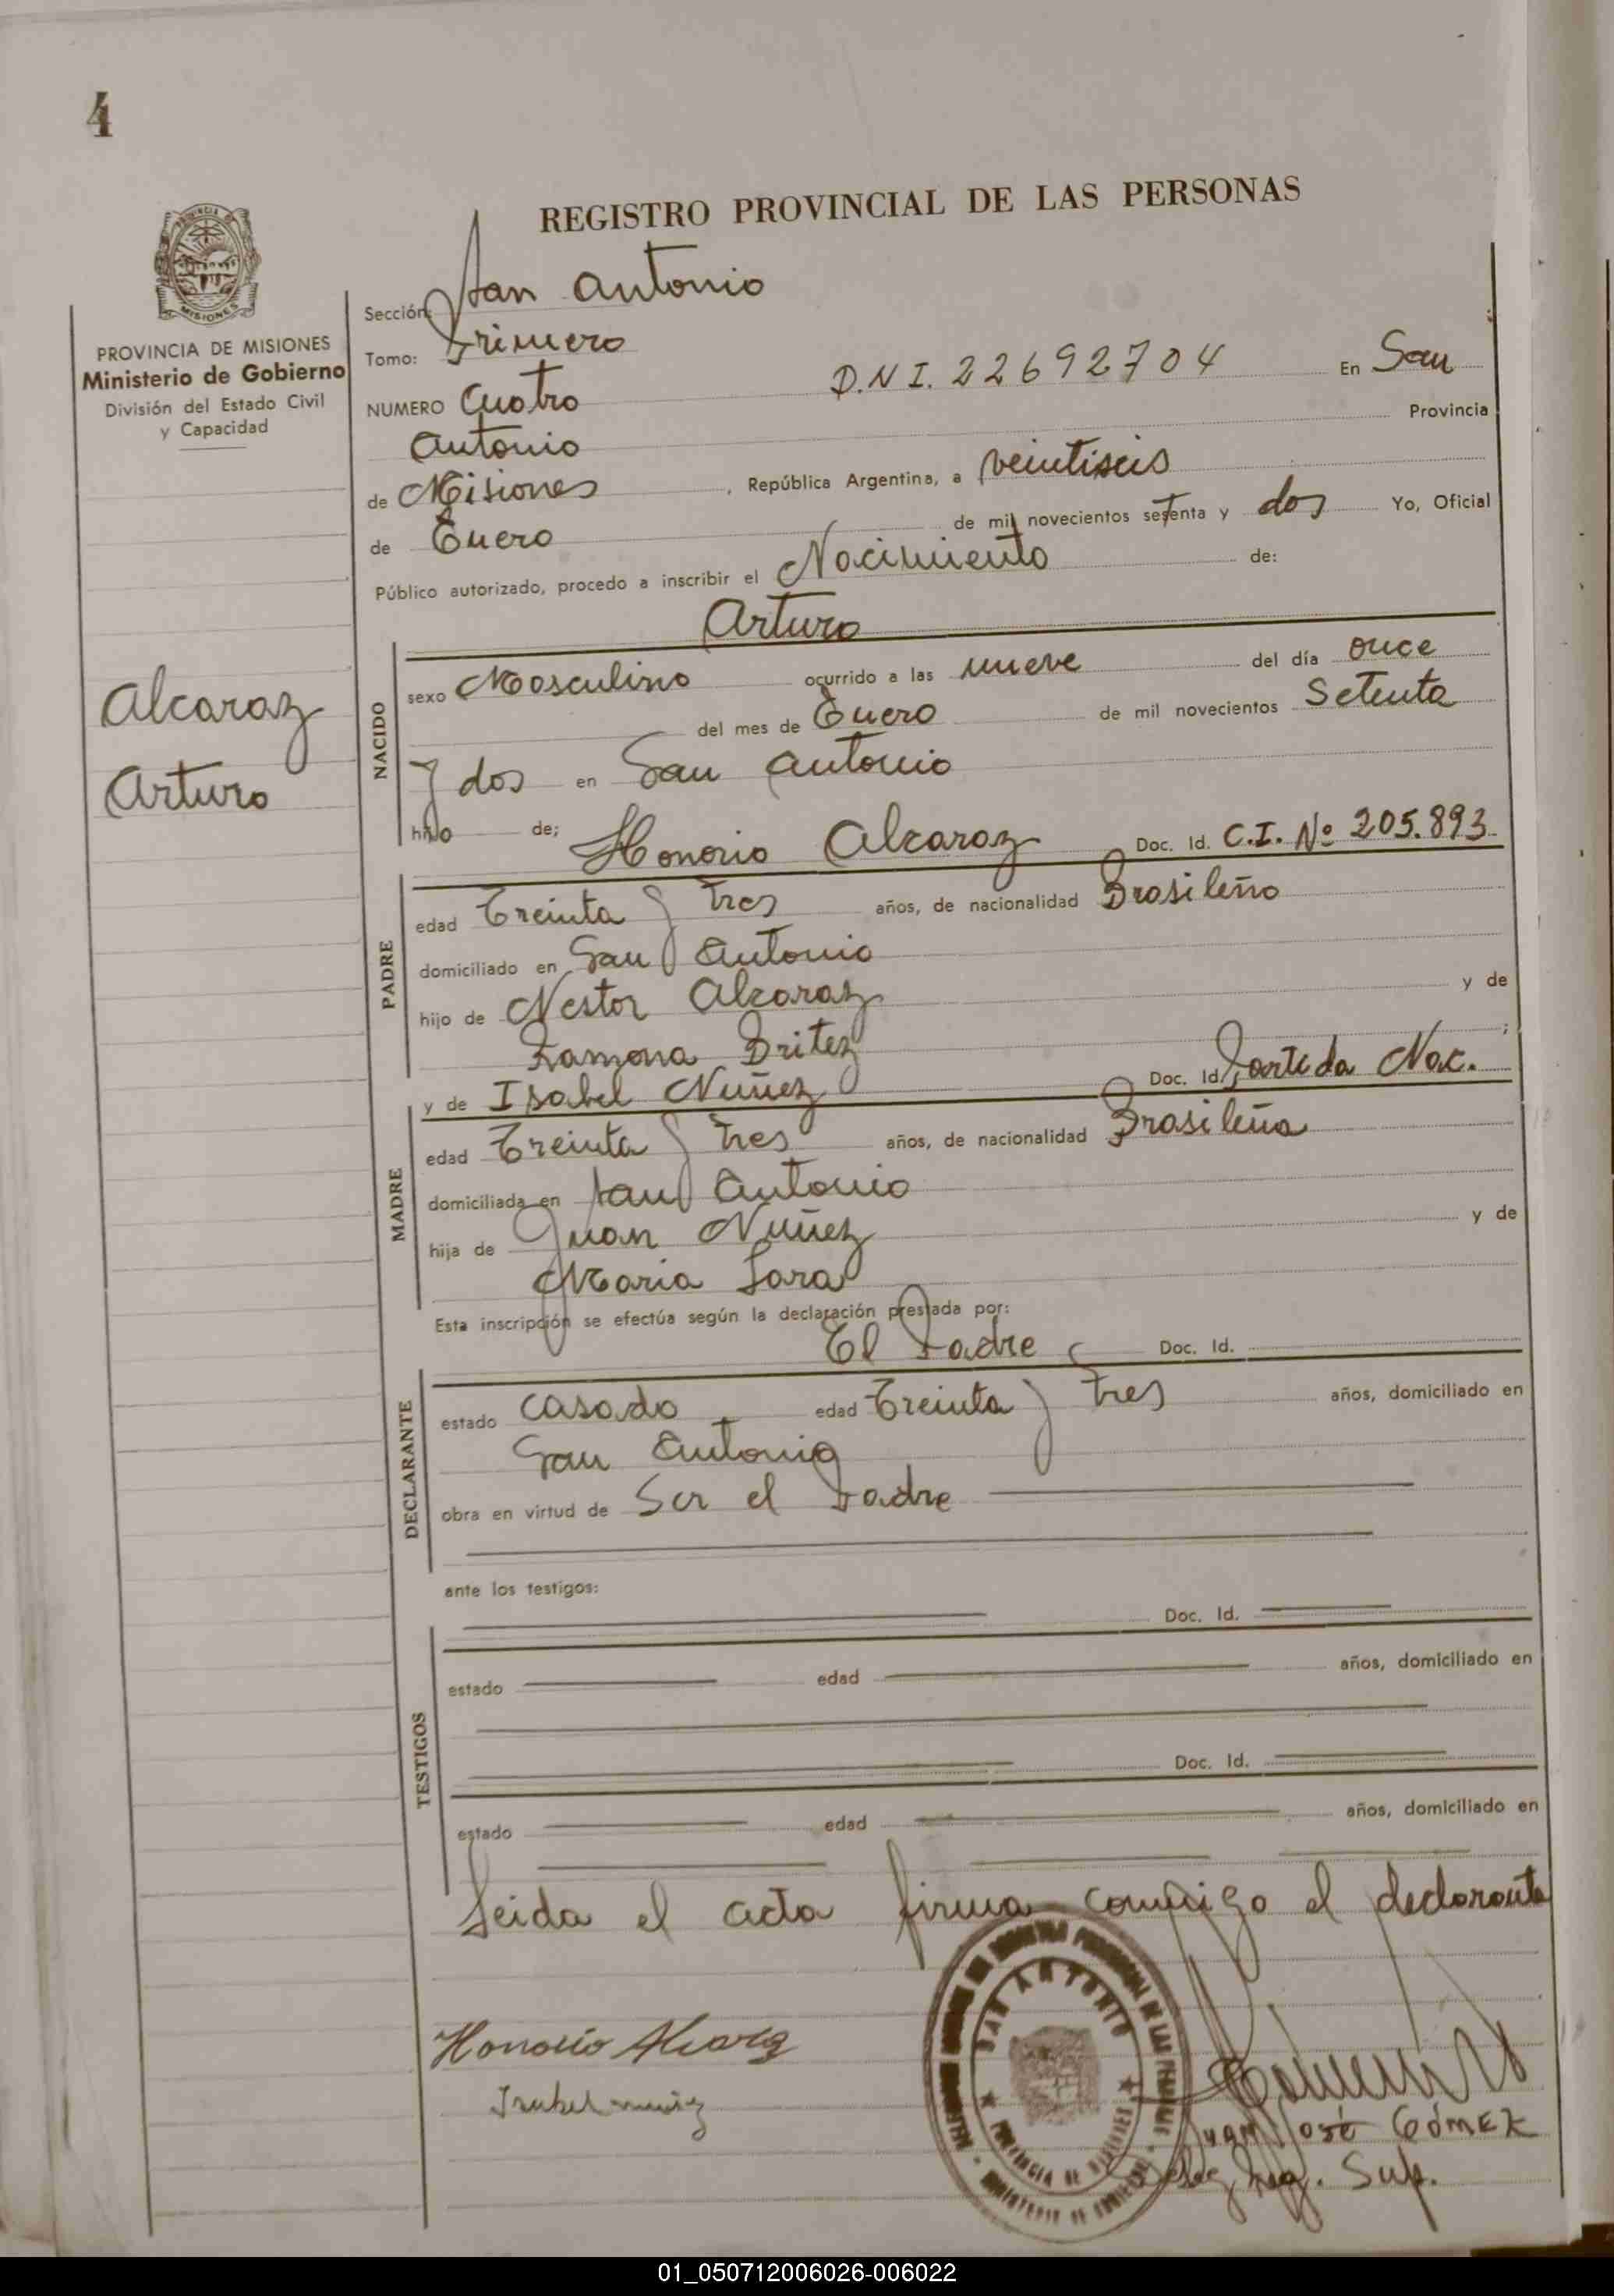 4
REGISTRO PROVINCIAL DE LAS PERSONAS
PROVINCIA DE MISIONES
Ministerio de Gobierno
División del Estado Civil
y Capacidad
Sección: San Antonio
Tomo: Primero
D.N.I. 22692704 En San
NUMERO Cuatro
Antonio Provincia
de Misiones, República Argentina, a veintiseis
de Enero de mil novecientos setenta y dos Yo, Oficial
Público autorizado, procedo a inscribir el Nacimiento de:
Arturo
Alcaraz
Arturo
NACIDO
sexo Masculino ocurrido a las nueve del día once
del mes de Enero de mil novecientos Setenta
y dos en San Antonio
hijo de; Honorio Alcaraz Doc. Id. C.I. Nº 205.893
PADRE
edad Treinta y tres años, de nacionalidad Brasileño
domiciliado en San Antonio
hijo de Nestor Alcaraz y de
Ramona Britez ;
y de Isabel Nuñez Doc. Id. Partida Nac.
MADRE
edad Treinta y tres años, de nacionalidad Brasileña
domiciliada en San Antonio
hija de Juan Nuñez y de
Maria Lara
Esta inscripción se efectúa según la declaración prestada por:
El Padre Doc. Id.
DECLARANTE
estado casado edad Treinta y tres años, domiciliado en
San Antonio
obra en virtud de Ser el Padre
ante los testigos:
Doc. Id.
TESTIGOS
estado edad años, domiciliado en
Doc. Id.
estado edad años, domiciliado en
Leida el acta firma conmigo el declarante
Honorio
Isabel
SAN ANTONIO
PROVINCIA DE MISIONES
MINISTERIO DE GOBIERNO
Juan José Gómez
Reg. Sup.
01_050712006026-006022